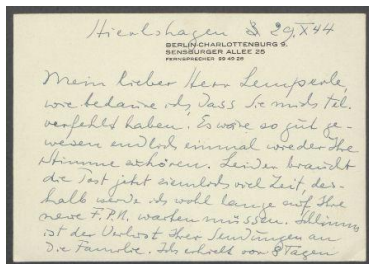 Hierlshagen 29.X.44
BERLIN-CHARLOTTENBURG 9.
SENSBURGER ALLEE 25
FERNSPRECHER 99 40 26
Mein lieber Herr Lemperle,
wie bedaure ich, dass Sie mich tel.
verfehlt haben. Es wäre so gut ge-
wesen endlich einmal wieder Ihre
Stimme zu hören. Leider braucht
die Post jetzt ziemlich viel Zeit, des-
halb werde ich wohl lange auf Ihre
neue F.P.N. warten müssen. Schlimm
ist der Verlust Ihrer Sendungen an
die Familie. Ich erhielt vor 8 Tagen